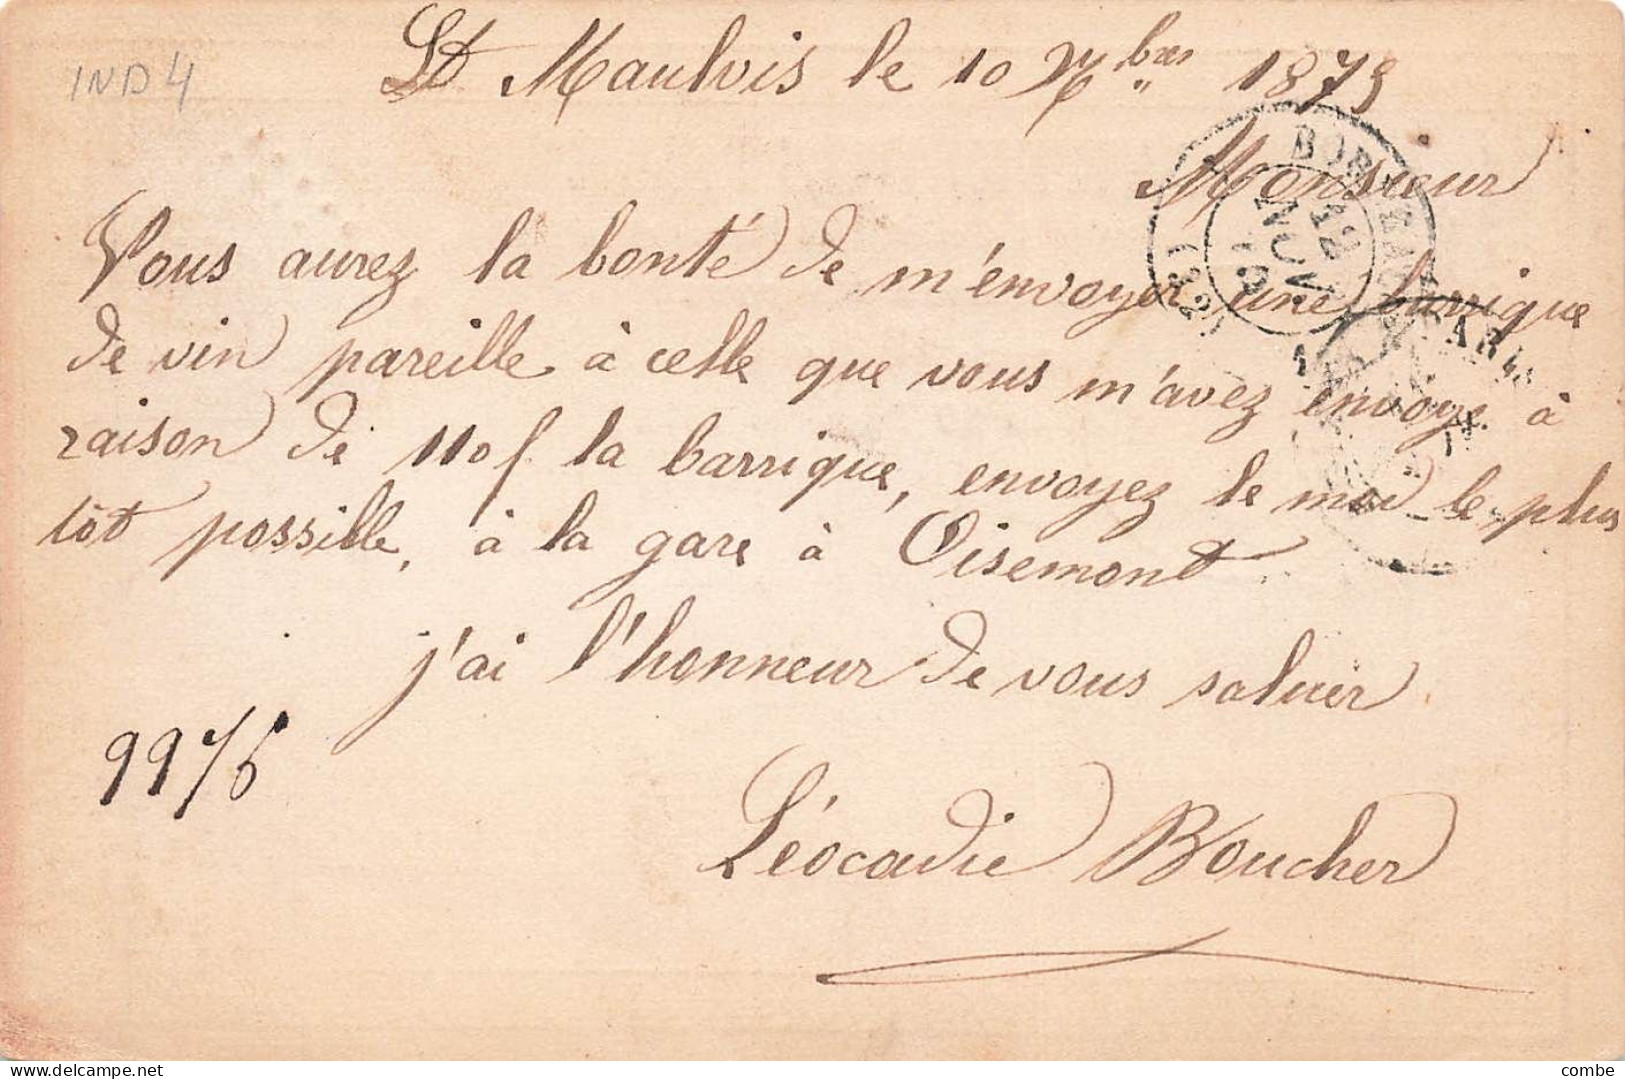 IND 4
St Maulvis le 10 9bres 1879
Monsieur
Vous aurez la bonté de m'envoyer une barrique
de vin pareille à celle que vous m'avez envoyé à
raison de 110f la barrique, envoyez le moi le plus
tôt possible, à la gare à Oisemont.
j'ai l'honneur de vous saluer
9976
Léocadie Boucher
BORDEAUX
12
NOV
79
(32)
PARIS
Delcampe.net
combe